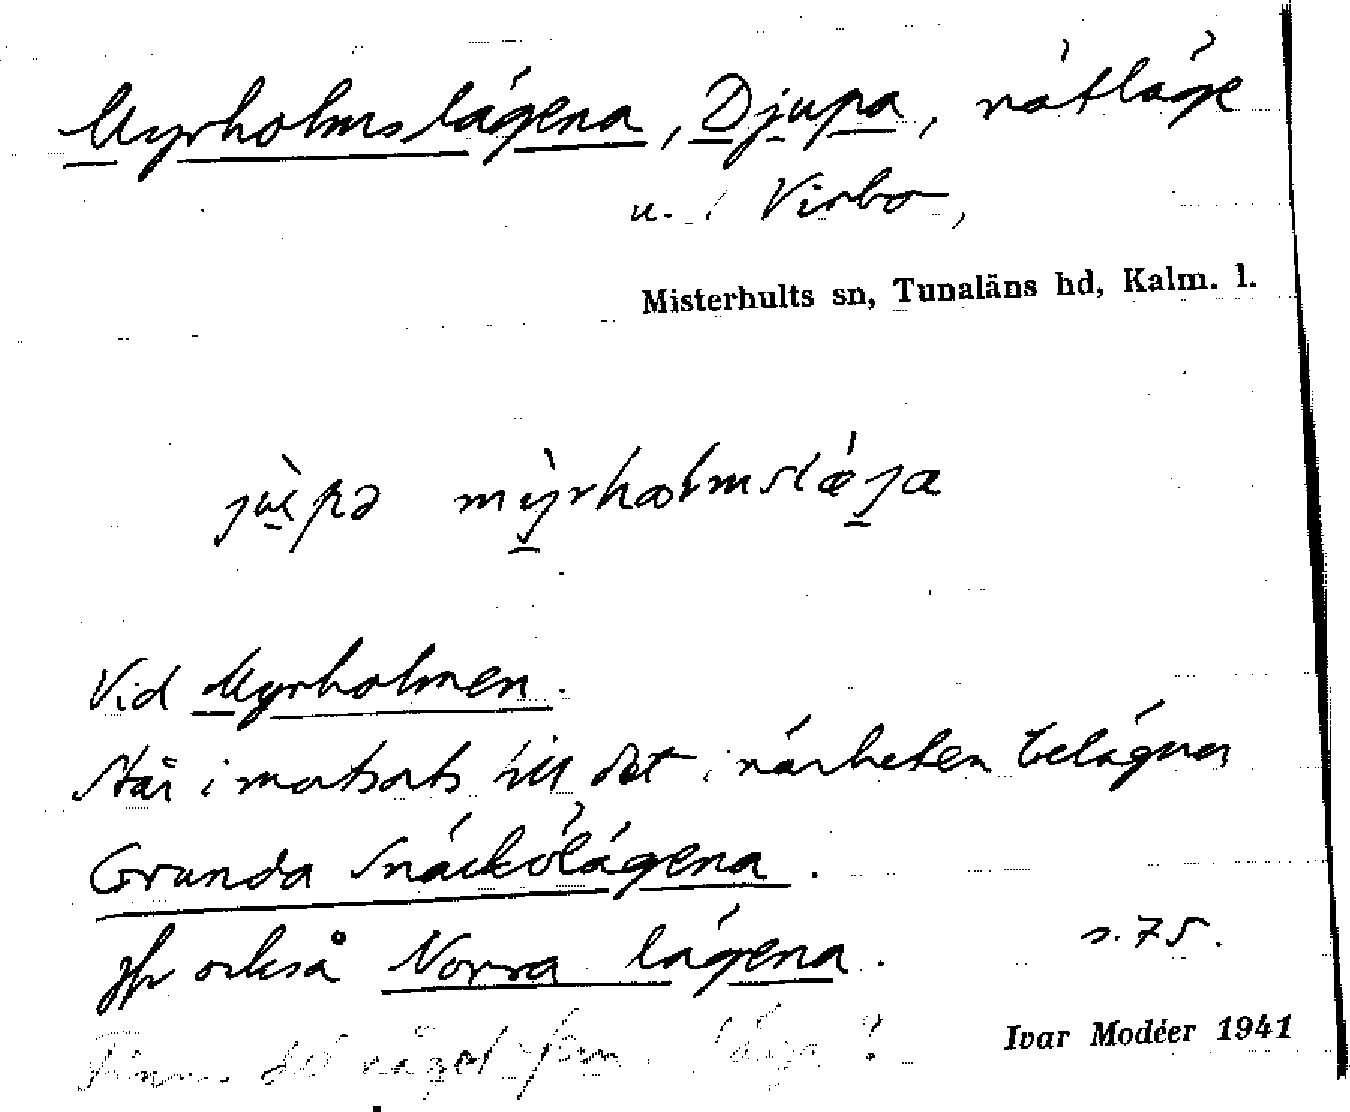 Myrholmslägena, Djupa, nätläge
u. Virbo,
Misterhults sn, Tunaläns hd, Kalm. l.
mỳrhɷlmslǽȷa
Vid Myrholmen.
Står i motsats till det i närheten belägna
Grunda Snäckölägena.
Jfr också Norra lägena. s. 75.
Finns det något fem. ?
Ivar Modéer 1941